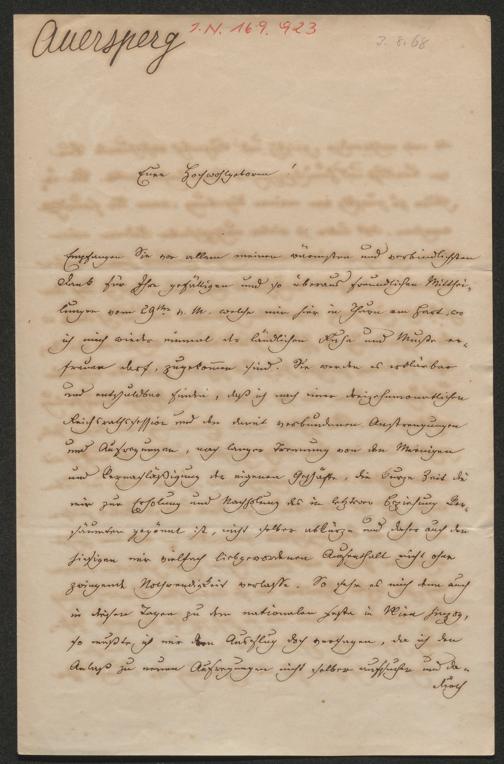 Auersperg
J.N. 169.923
3.8.68
Euer Hochwohlgeboren!
Empfangen Sie vor allem meinen wärmsten und verbindlichsten
Dank für Ihre gefälligen und so überaus freundlichen Mitthei-
lungen vom 29ten v. M. welche mir hier in Thurn am Hart, wo
ich mich wieder einmal der ländlichen Ruhe und Muße er-
freuen darf, zugekommen sind. Sie werden es erklärbar
und entschuldbar finden, daß ich nach einer dreizehnmonatlichen
Reichsrathssession und den damit verbundenen Anstrengungen
und Aufregungen, nach langer Trennung von den Meinigen
und Vernachläßigung der eigenen Geschäfte, die kurze Zeit die
mir zur Erholung und Nachholung des in letzterer Beziehung Ver-
säumten gegönnt ist, nicht selber abkürze und daher auch den
hiesigen mir vielfach liebgewordenen Aufenthalt nicht ohne
zwingende Nothwendigkeit verlasse. So sehr es mich denn auch
in diesen Tagen zu dem nationalen Feste in Wien hinzog,
so mußte ich mir den Ausflug doch versagen, da ich den
Anlaß zu neuen Aufregungen nicht selber aufsuchen und da-
durch